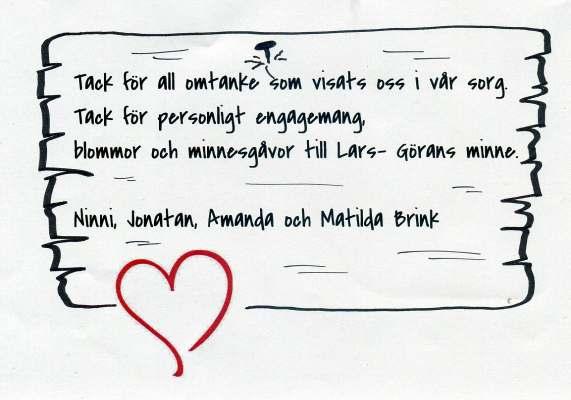 Tack för all omtanke som visats oss i vår sorg.
Tack för personligt engagemang,
blommor och minnesgåvor till Lars- Görans minne.
Ninni, Jonatan, Amanda och Matilda Brink